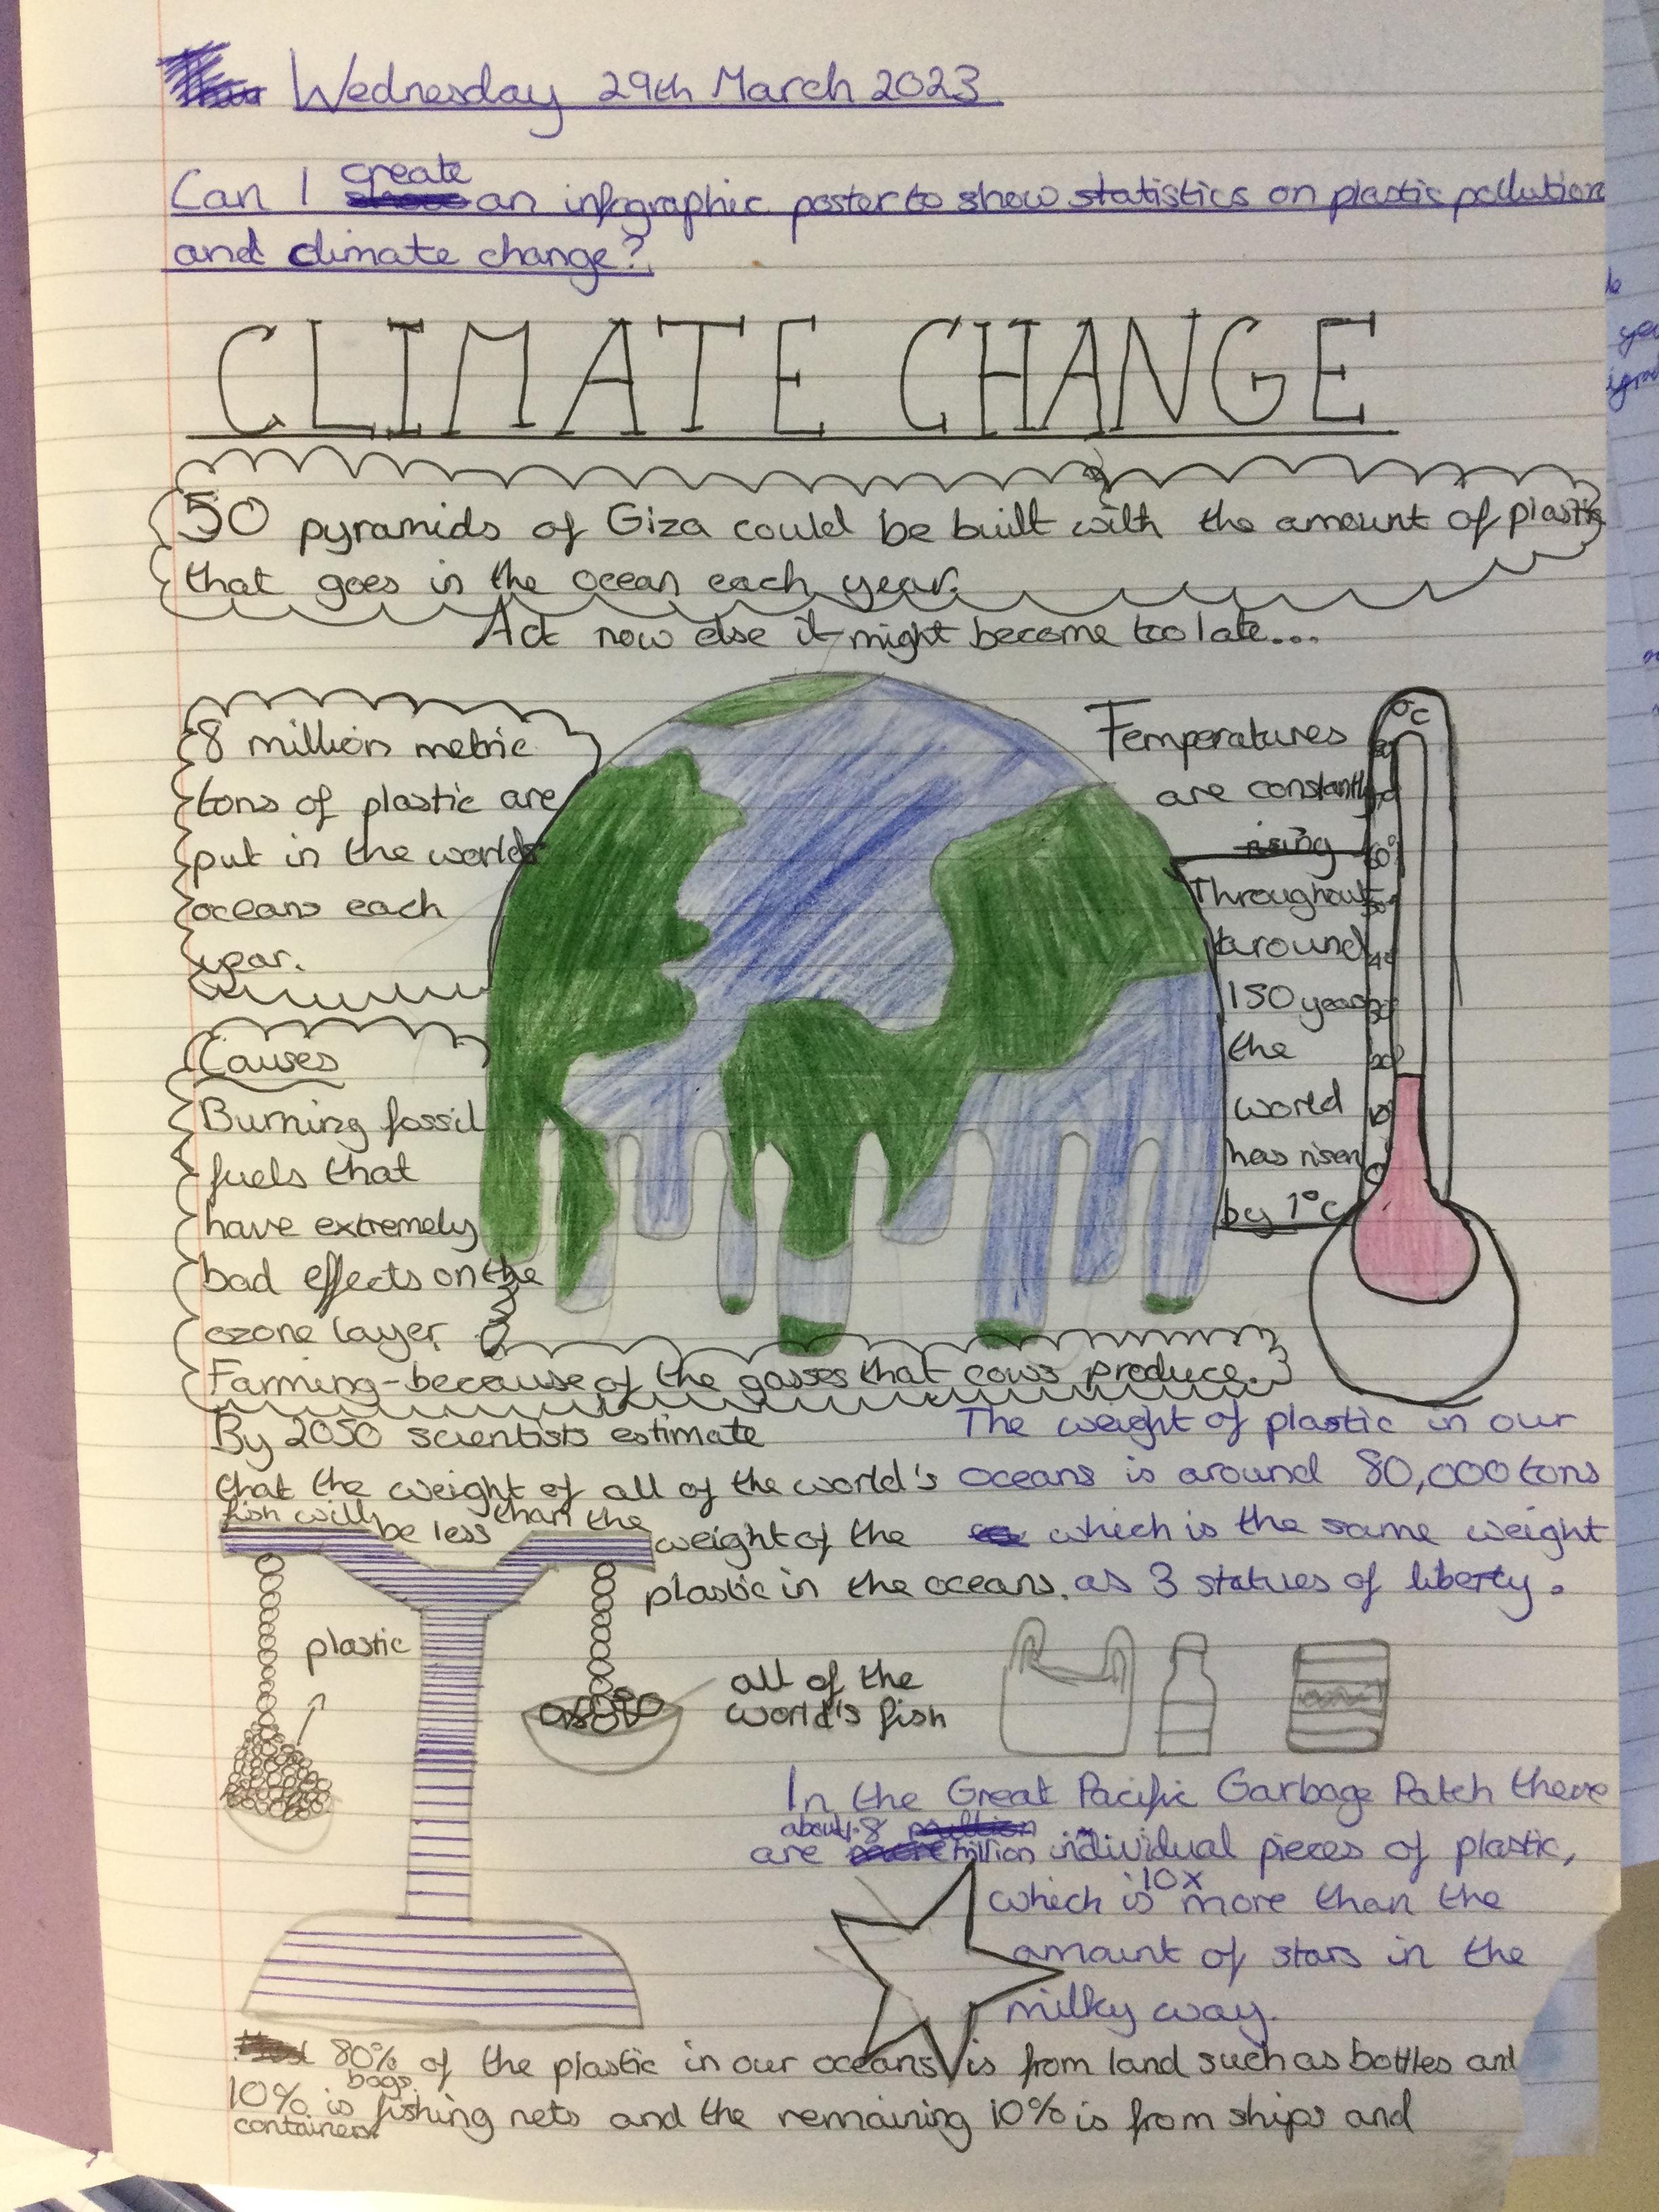 Wednesday 29th March 2023
Can I create an infographic poster to show statistics on plastic pollution
and climate change?
CLIMATE CHANGE
50 pyramids of Giza could be built with the amount of plastic
that goes in the ocean each year.
Act now else it might become too late...
8 million metric
tons of plastic are
put in the worlds
oceans each
year.
Causes
Burning fossil
fuels that
have extremely
bad effects on the
ozone layer
Farming-because of the gasses that cows produce.
Temperatures
are constantly
rising
Throughout
around
150 years
the
world
has risen
by 1°c
°c
60°
50°
40
30
20
10
0
By 2050 scientists estimate
that the weight of all of the world's
fish will be less than the
weight of the
plastic in the oceans.
The weight of plastic in our
oceans is around 80,000 tons
which is the same weight
as 3 statues of liberty.
plastic
all of the
world's fish
In the Great Pacific Garbage Patch there
are about 1.8 million individual pieces of plastic,
which is 10x more than the
amount of stars in the
milky way.
80% of the plastic in our oceans is from land such as bottles and
bags
10% is fishing nets and the remaining 10% is from ships and
containers.